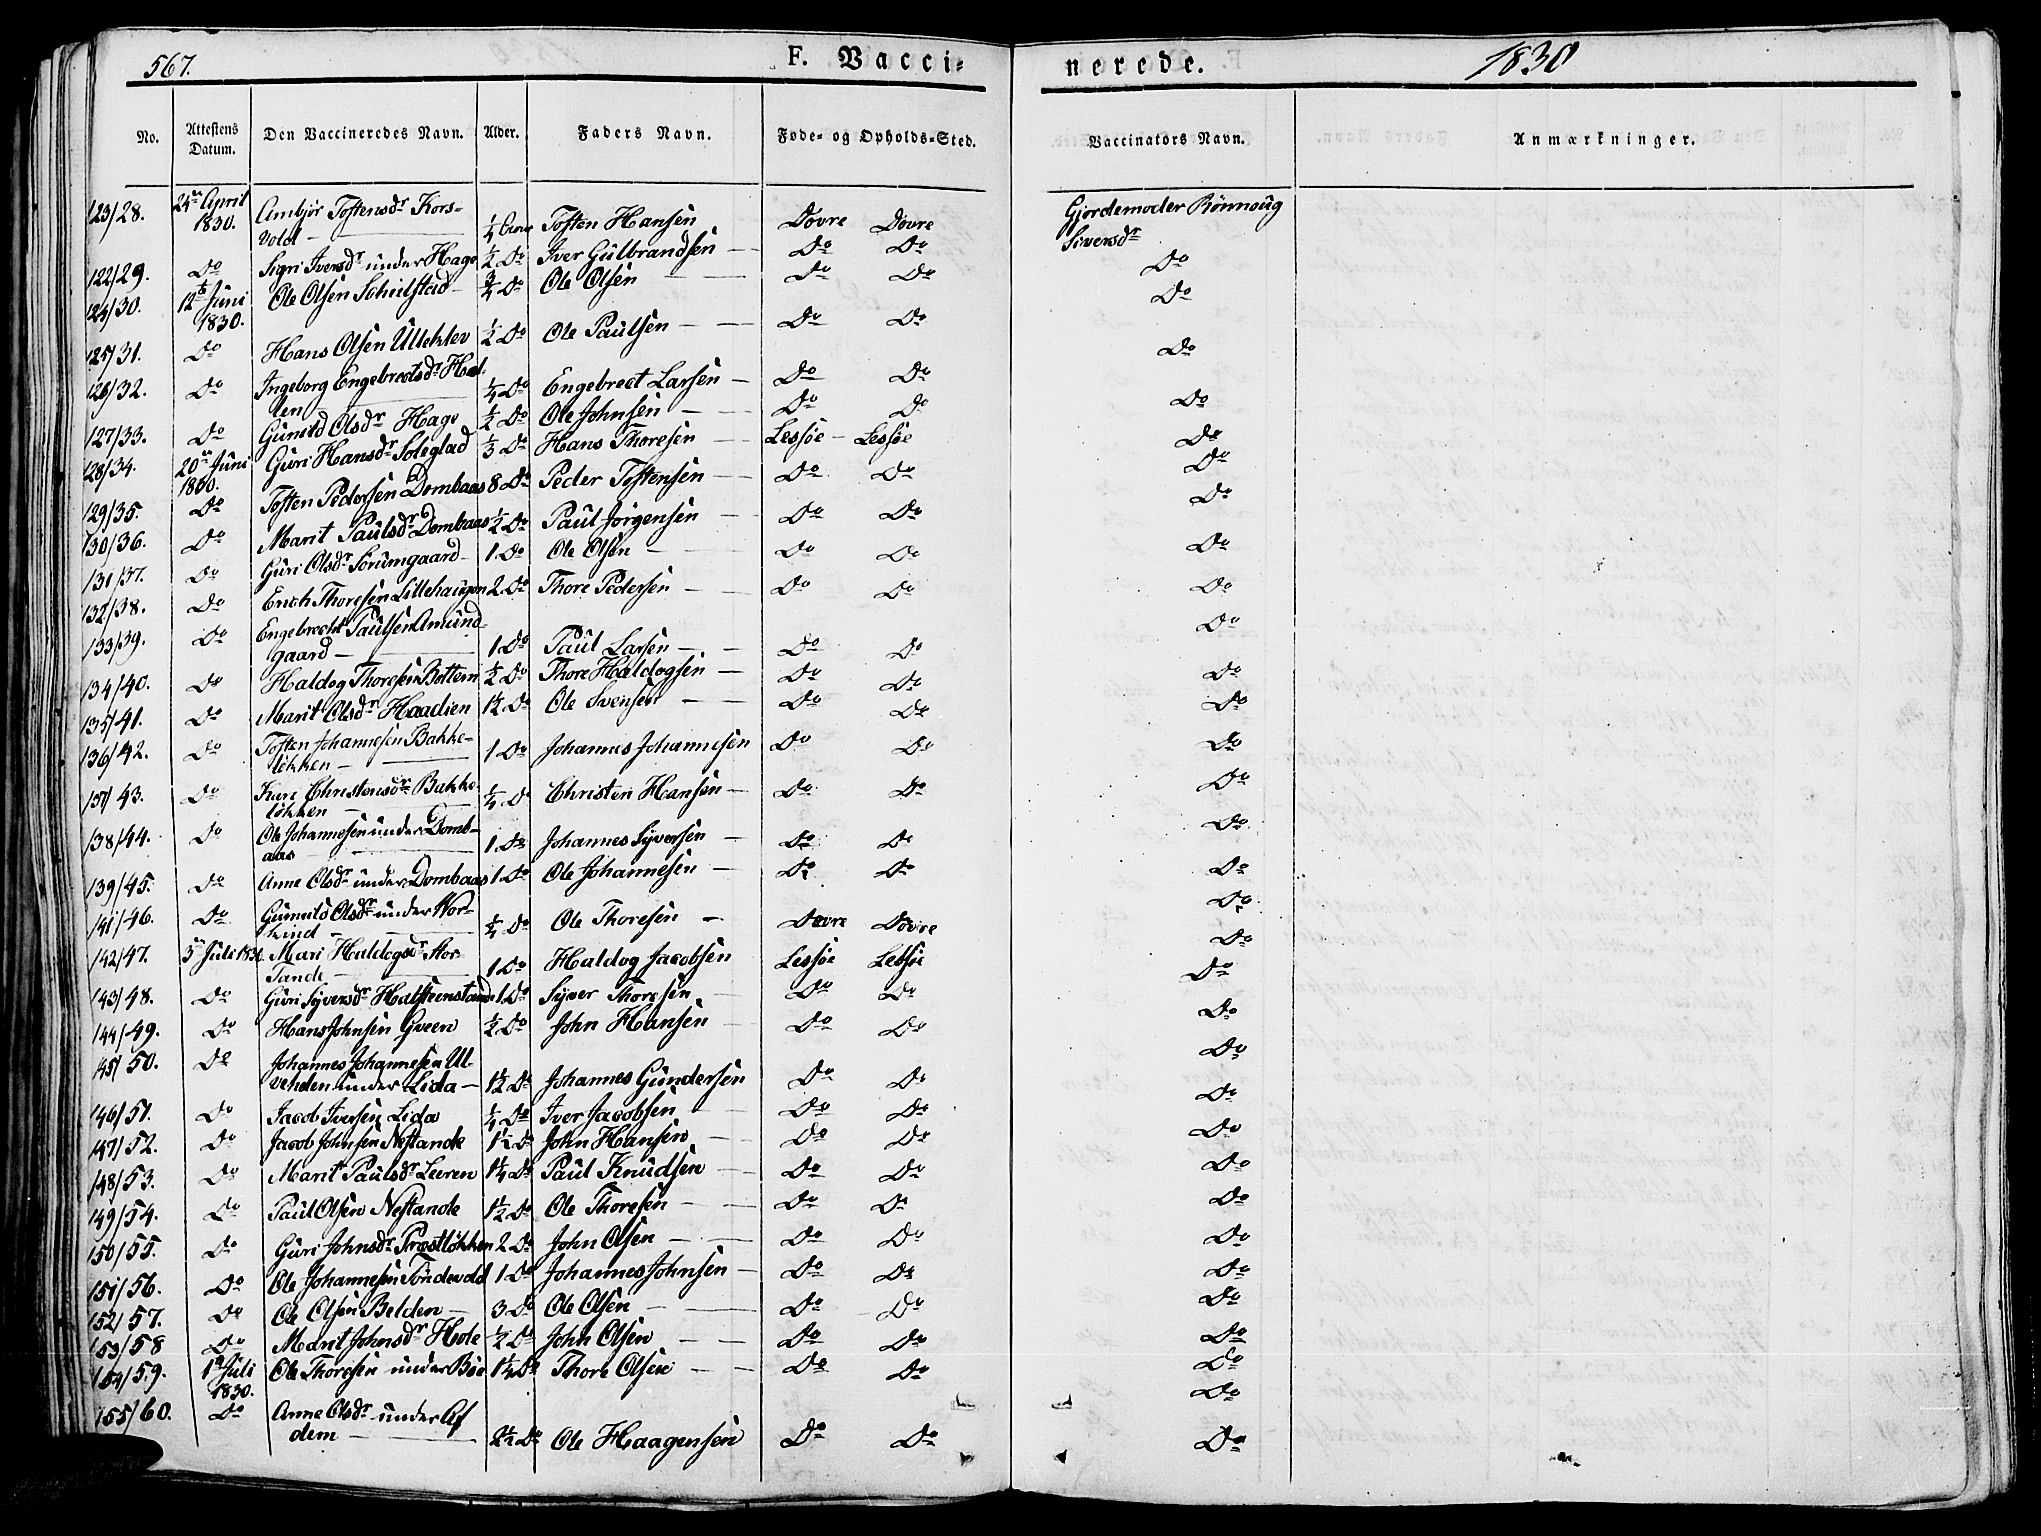 567.
F. Vacci-
nerede.
1830
No.
Attestens Datum.
Den Vaccineredes Navn.
Alder.
Faders Navn.
Føde- og Opholds-Sted.
Vaccinators Navn.
Anmærkninger.
123/28. 24de April 1830. Ambjør Tostensdr Kors-
vold — ¼ Tosten Hansen Dovre Dovre Gjordemoder Rönnoug Siversdr
122/29. Do Sigri Iversdr under Hage ½ Do Iver Gulbrandsen — Do Do Do
124/30. 12te Juni 1830. Ole Olsen — ¾ Do Ole Olsen — Do Do Do
125/31. Do Hans Olsen Ullekler ½ Do Ole Paulsen — Do Do Do
126/32. Do Ingeborg Engebretsdr
len — ¼ Do Engebret Larsen — Do Do Do
127/33. Do Gunild Olsdr Hage ½ Do Ole Johnsen — Do Do Do
128/34. 20de Juni 1830. Guri Hansdr Soleglad ⅓ Do Hans Thoresen — Lessøe — Lessøe Do
129/35. Do Tosten Pedersen Dombaas 8 Do Peder Tostensen — Do Do Do
130/36. Do Marit Paulsdr Dombaas ½ Do Paul Jörgensen — Do Do Do
131/37. Do Guri Olsdr Sorumgaard — 1 Do Ole Olsen — Do Do Do
132/38. Do Erich Thoresen Lillehaugen 2 Do Thore Pedersen — Do Do Do
133/39. Do Engebrecht Paulsen Amund-
gaard — 1 Do Paul Larsen — Do Do Do
134/40. Do Haldog Thoresen Bottem ½ Do Thore Haldogsen — Do Do Do
135/41. Do Marit Olsdr Haadien 1½ Do Ole Svensen — Do Do Do
136/42. Do Tosten Johannesen Bakke-
løkken — 1 Do Johannes Johannesen Do Do Do
137/43. Do Kari Christensdr Bakke-
løkken — ¼ Do Christen Hansen — Do Do Do
138/44. Do Ole Johannesen under Domb-
aas — 1 Do Johannes Syversen — Do Do Do
139/45. Do Anne Olsdr under Dombaas 1 Do Ole Johannesen — Do Do Do
141/46. Do Gunnild Olsdr under Nor-
— ¼ Do Ole Thoresen — Dovre Dovre Do
142/47. 5te Juli 1830. Mari Haldogsdr Nor-
Tande — 1 Do Haldog Jacobsen Lessøe Lessøe Do
143/48. Do Guri Syversdr Halsteenstande 1 Do Syver Thoresen — Do Do Do
144/49. Do Hans Johnsen Gveen ½ Do John Hansen — Do Do Do
145/50. Do Johannes Johannesen Ul-
venden under Lida — 1½ Do Johannes Gundersen Do Do Do
146/51. Do Jacob Iversen Lida ¼ Do Iver Jacobsen — Do Do Do
147/52. Do Jacob Johnsen Nestande 1½ Do John Hansen — Do Do Do
148/53. Do Marit Paulsdr Leeren 1¼ Do Paul Knudsen — Do Do Do
149/54. Do Paul Olsen Nestande 1½ Do Ole Thoresen — Do Do Do
150/55. Do Guri Johnsdr Præstløkken 2 Do John Olsen — Do Do Do
151/56. Do Ole Johannesen Tøndevold 1 Do Johannes Johnsen — Do Do Do
152/57. Do Ole Olsen Belden — 3 Do Ole Olsen — Do Do Do
153/58 Do Marit Johnsdr Hole ½ Do John Olsen — Do Do Do
154/59. Juli 1830. Ole Thoresen under Böe 1¼ Do Thore Olsen — Do Do Do
155/60. Do Anne Olsdr under Af
dem — 2½ Do Ole Haagensen Do Do Do